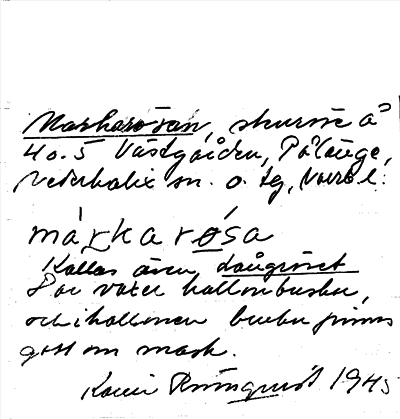 Markarosan, skurne å
40.5 Västgården, Pålänge,
Nederkalix sn. o. tg, Norrb l.
márkarósa
Kallas även daŭgrinet
Där växer hallonbuskar,
och i hallonen brukar finnas
gott om mask.
Karin Rönnquist 1945